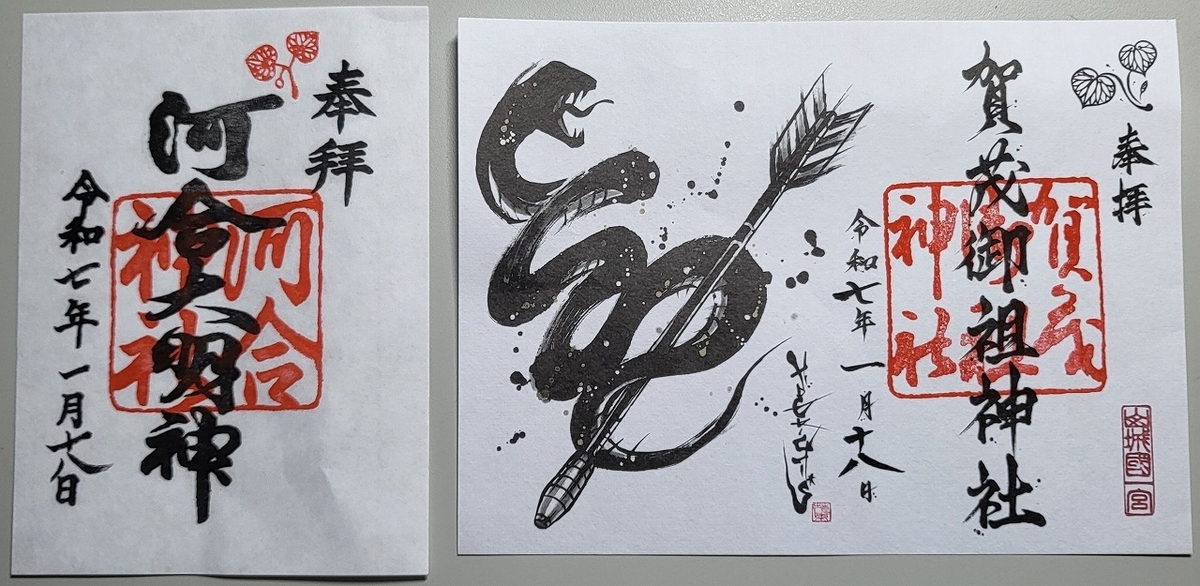 奉拝
河會大明神
河合
神社
令和七年一月十八日
奉拝
賀茂御祖神社
賀茂
御祖
神社
山城國一宮
令和七年一月十八日